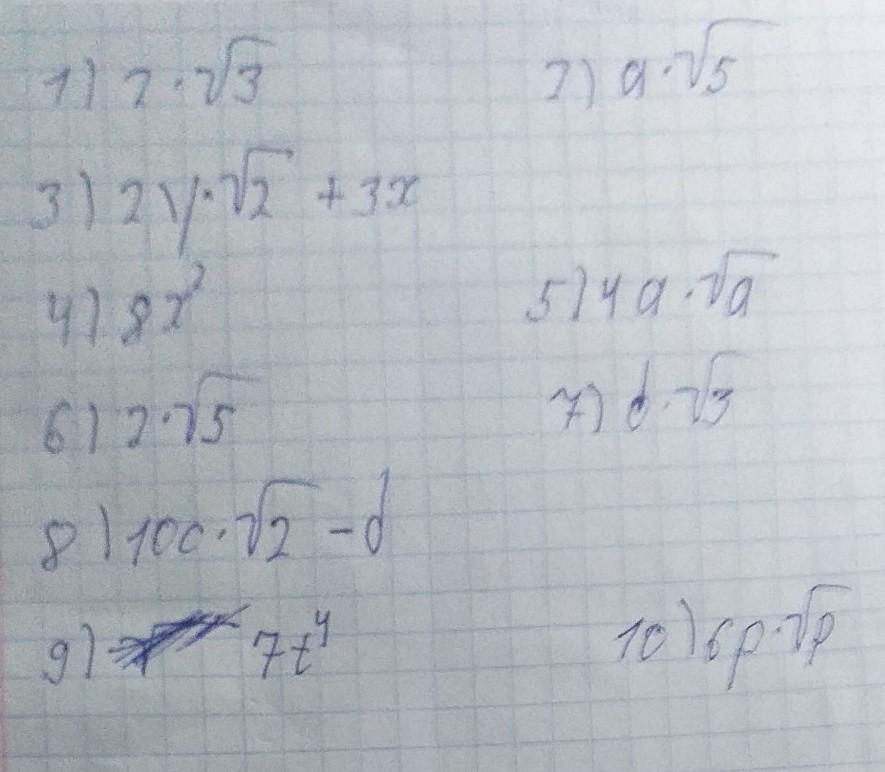 1) 2·√3 2) a·√5
3) 2y·√2 + 3x
4) 8x³ 5) 4a·√a
6) 2·√5 7) d·√3
8) 10c·√2 - d
9) 7t⁴ 10) 6p·√p